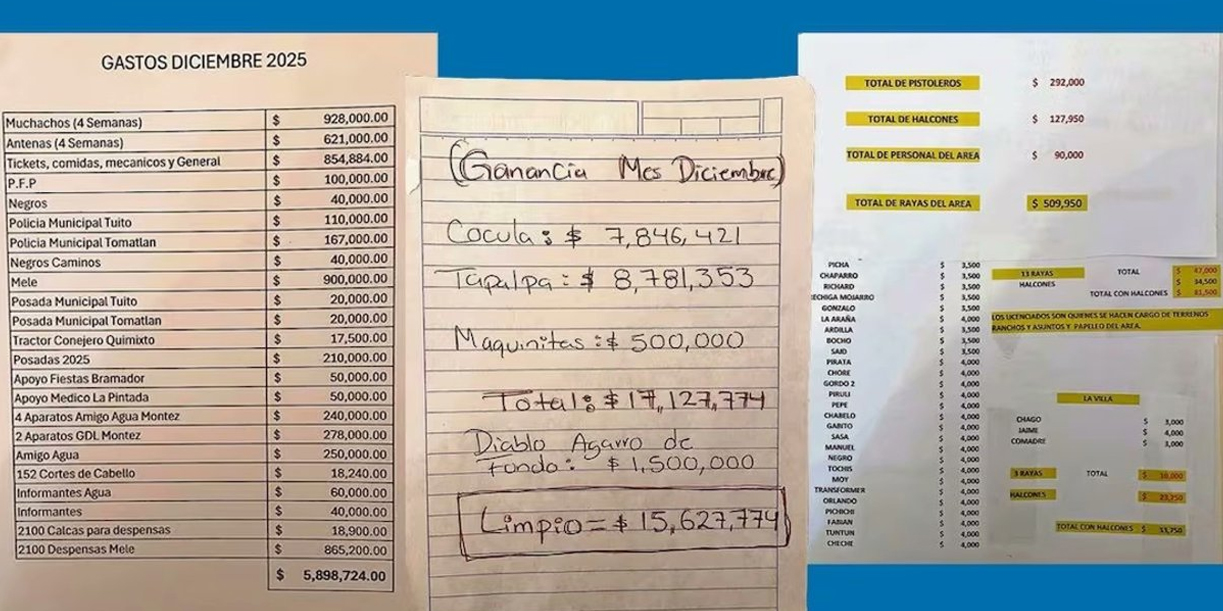 GASTOS DICIEMBRE 2025
Muchachos (4 Semanas) $ 928,000.00
Antenas (4 Semanas) $ 621,000.00
Tickets, comidas, mecanicos y General $ 854,884.00
P.F.P $ 100,000.00
Negros $ 40,000.00
Policia Municipal Tuito $ 110,000.00
Policia Municipal Tomatlan $ 167,000.00
Negros Caminos $ 40,000.00
Mele $ 900,000.00
Posada Municipal Tuito $ 20,000.00
Posada Municipal Tomatlan $ 20,000.00
Tractor Conejero Quimixto $ 17,500.00
Posadas 2025 $ 210,000.00
Apoyo Fiestas Bramador $ 50,000.00
Apoyo Medico La Pintada $ 50,000.00
4 Aparatos Amigo Agua Montez $ 240,000.00
2 Aparatos GDL Montez $ 278,000.00
Amigo Agua $ 250,000.00
152 Cortes de Cabello $ 18,240.00
Informantes Agua $ 60,000.00
Informantes $ 40,000.00
2100 Calcas para despensas $ 18,900.00
2100 Despensas Mele $ 865,200.00
$ 5,898,724.00
(Ganancia Mes Diciembre)
Cocula: $ 7,846,421
Tapalpa: $ 8,781,353
Maquinitas: $ 500,000
Total: $ 17,127,774
Diablo Agarro de
Fondo: $ 1,500,000
Limpio = $ 15,627,774
TOTAL DE PISTOLEROS $ 292,000
TOTAL DE HALCONES $ 127,950
TOTAL DE PERSONAL DEL AREA $ 90,000
TOTAL DE RAYAS DEL AREA $ 509,950
PICHA $ 3,500
CHAPARRO $ 3,500
RICHARD $ 3,500
ECHIGA MOJARRO $ 3,500
GONZALO $ 3,500
LA ARAÑA $ 4,000
ARDILLA $ 3,500
BOCHO $ 3,500
SAID $ 3,500
PIRATA $ 4,000
CHORE $ 4,000
GORDO 2 $ 4,000
PIRULI $ 4,000
PEPE $ 4,000
CHABELO $ 4,000
GABITO $ 4,000
SASA $ 4,000
MANUEL $ 4,000
NEGRO $ 4,000
TOCHIS $ 4,000
MOY $ 4,000
TRANSFORMER $ 4,000
ORLANDO $ 4,000
PICHICHI $ 4,000
FABIAN $ 4,000
TUNTUN $ 4,000
CHECHE $ 4,000
13 RAYAS TOTAL $ 47,000
HALCONES $ 34,500
TOTAL CON HALCONES $ 81,500
LOS LICENCIADOS SON QUIENES SE HACEN CARGO DE TERRENOS
RANCHOS Y ASUNTOS Y PAPELEO DEL AREA.
LA VILLA
CHAGO $ 3,000
JAIME $ 4,000
COMADRE $ 3,000
3 RAYAS TOTAL $ 10,000
HALCONES $ 23,750
TOTAL CON HALCONES $ 33,750